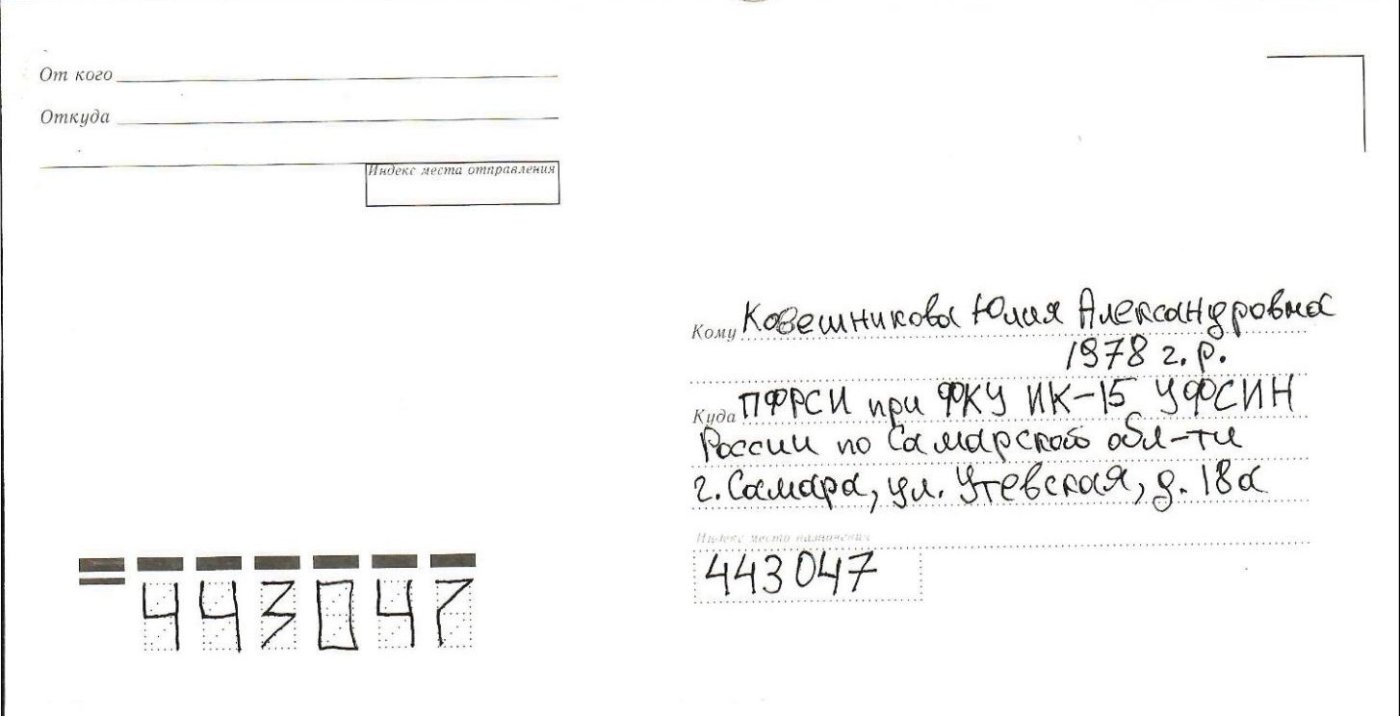 От кого
Откуда
Индекс места отправления
Кому Ковешникова Юлия Александровна
1978 г. р.
Куда ПФРСИ при ФКУ ИК-15 УФСИН
России по Самарской обл-ти
г. Самара, ул. Утевская, д. 18а
Индекс место назначения
443047
443047